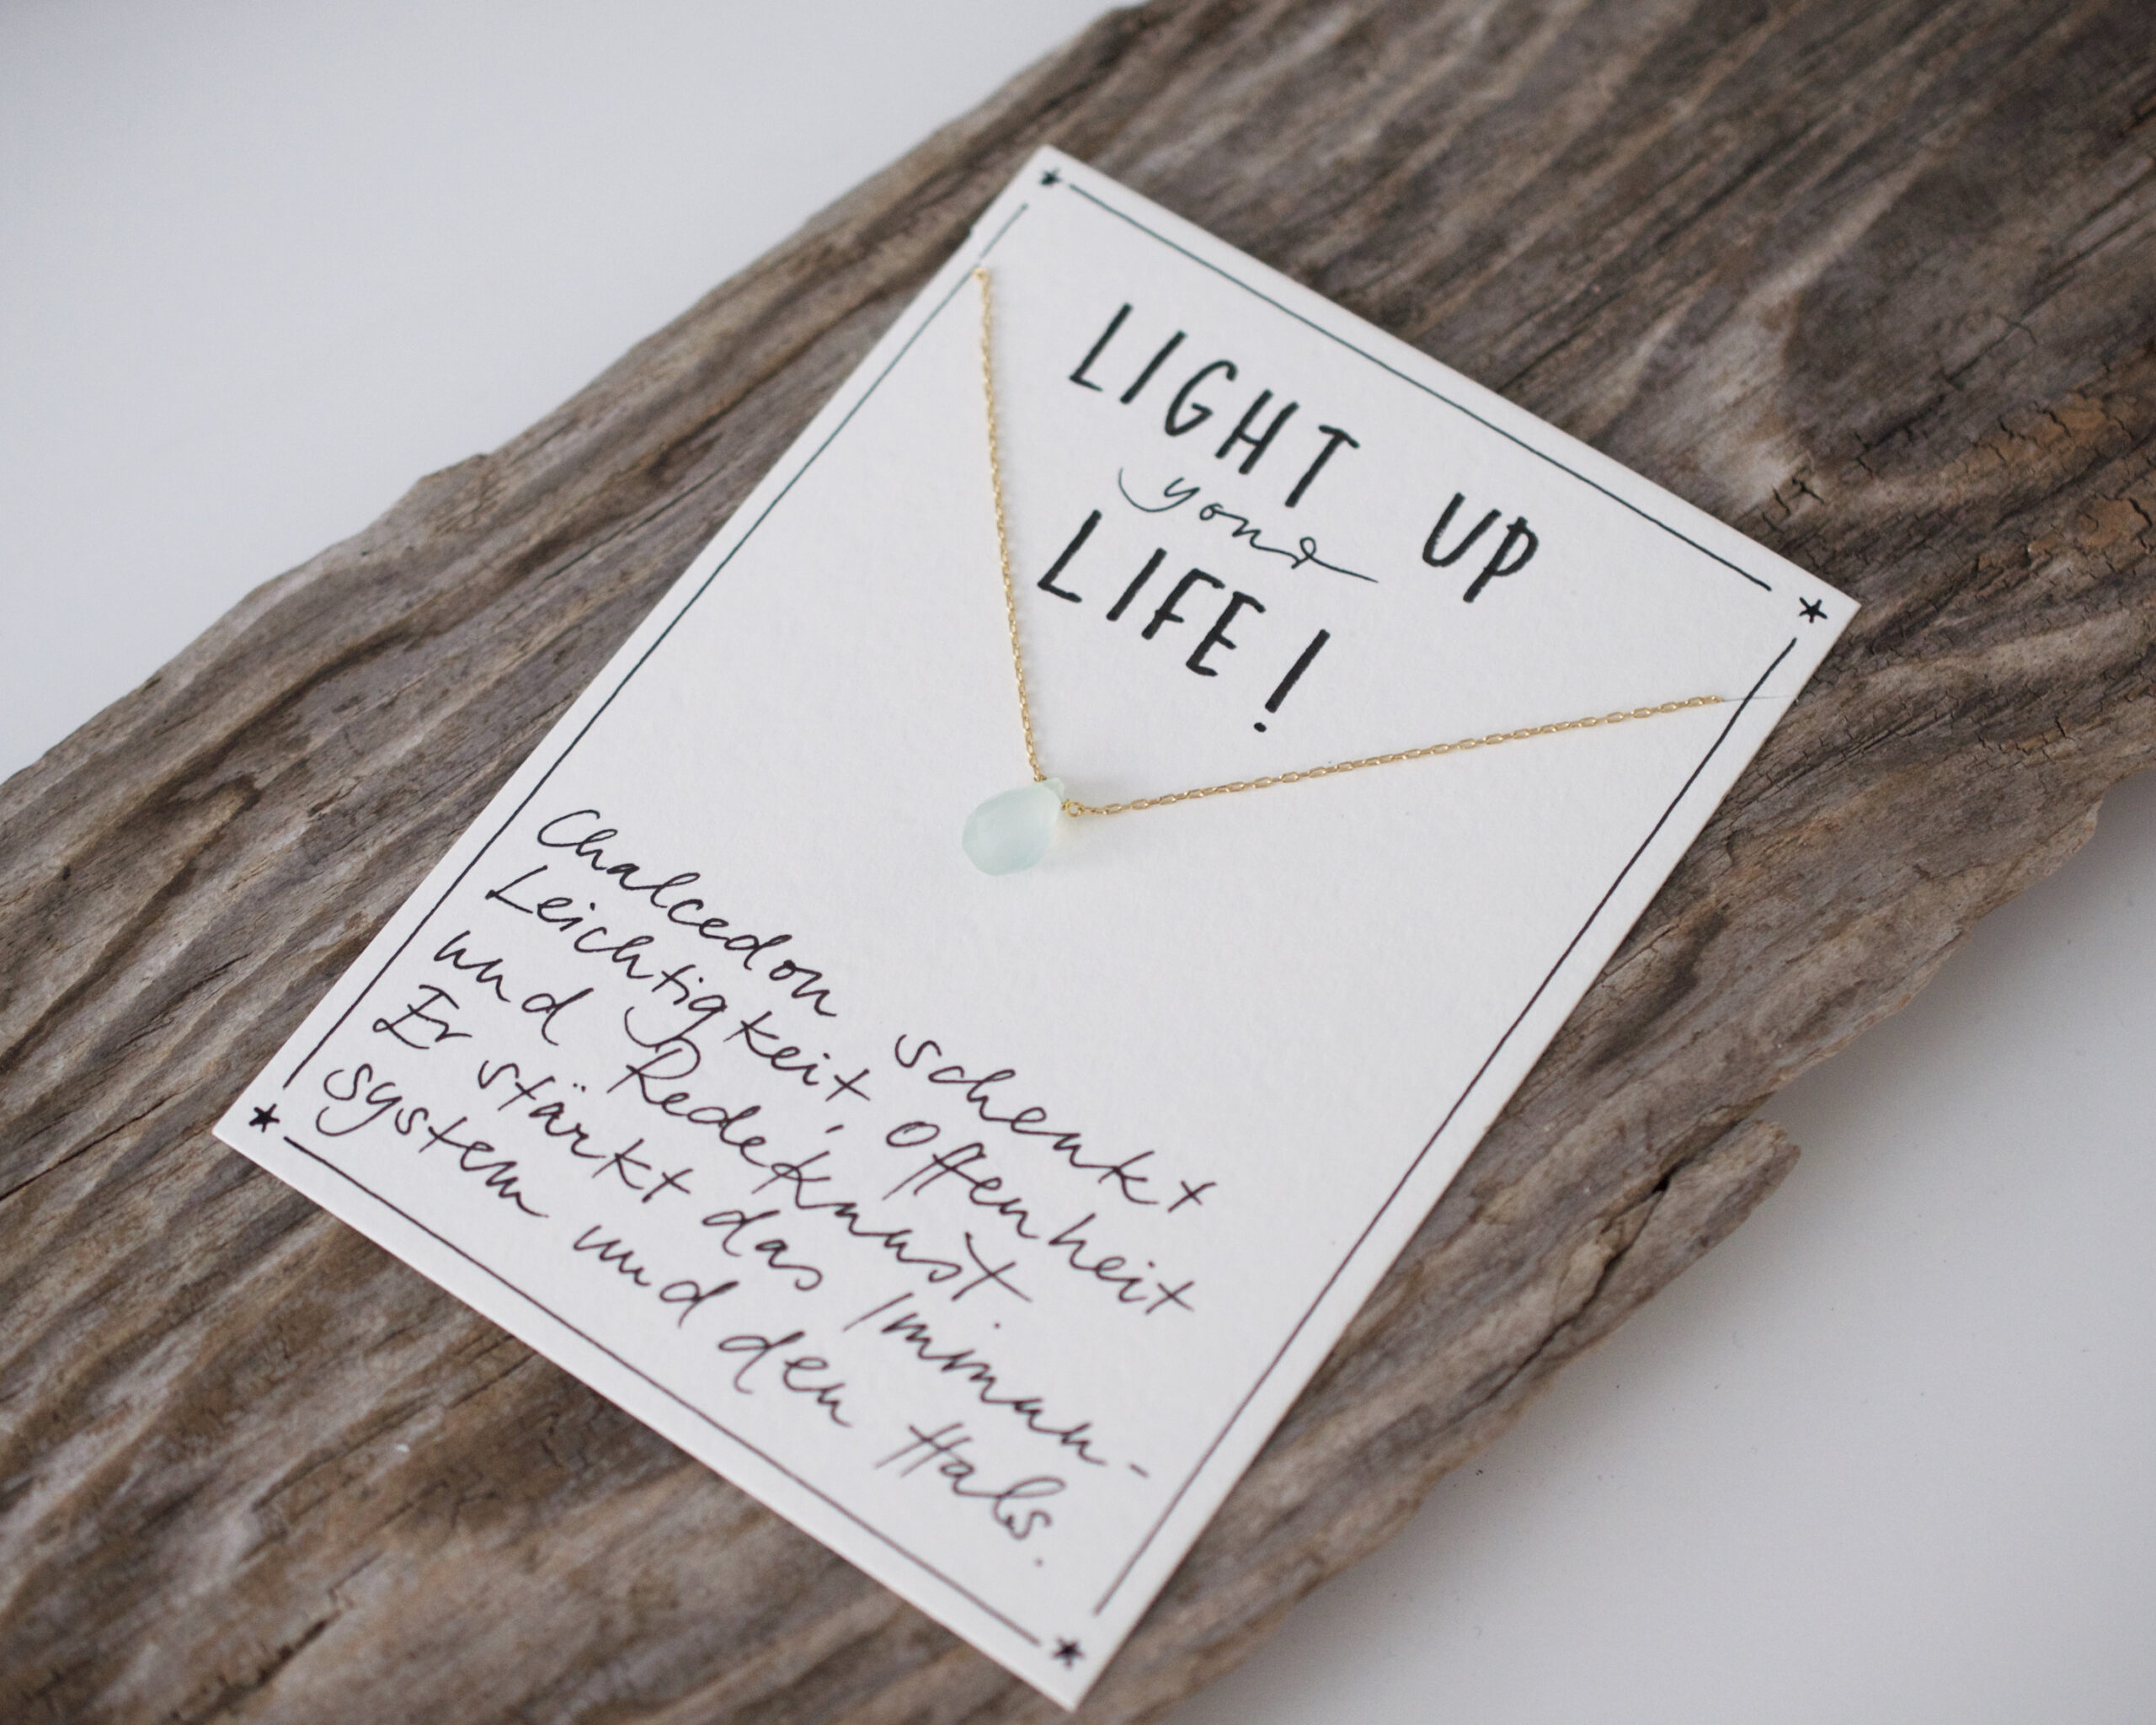 LIGHT UP
your
LIFE!
Chalcedon schenkt
Leichtigkeit, Offenheit
und Redekunst.
Er stärkt das Immun-
system und den Hals.